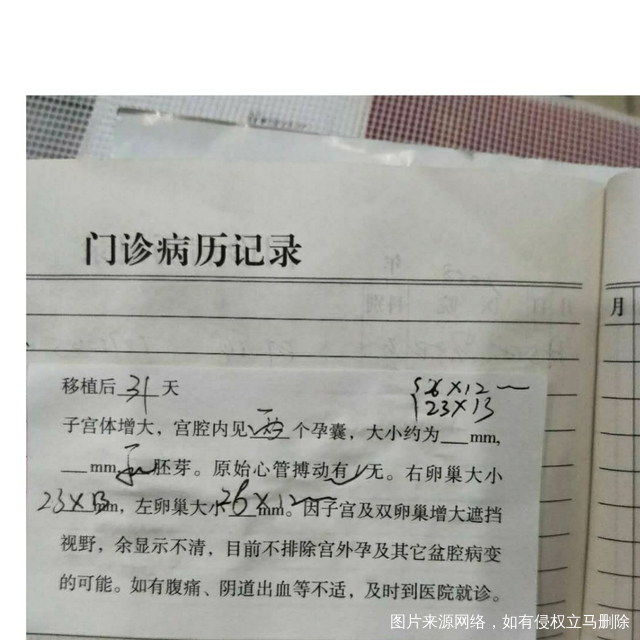 门诊病历记录
月
移植后 31 天
26×12
23×13
子宫体增大，宫腔内见 两 个孕囊，大小约为 mm，
mm 胚芽。原始心管搏动有 / 无。右卵巢大小
23×13 mm，左卵巢大小 26×12 mm。因子宫及双卵巢增大遮挡
视野，余显示不清，目前不排除宫外孕及其它盆腔病变
的可能。如有腹痛、阴道出血等不适，及时到医院就诊。
图片来源网络，如有侵权立马删除